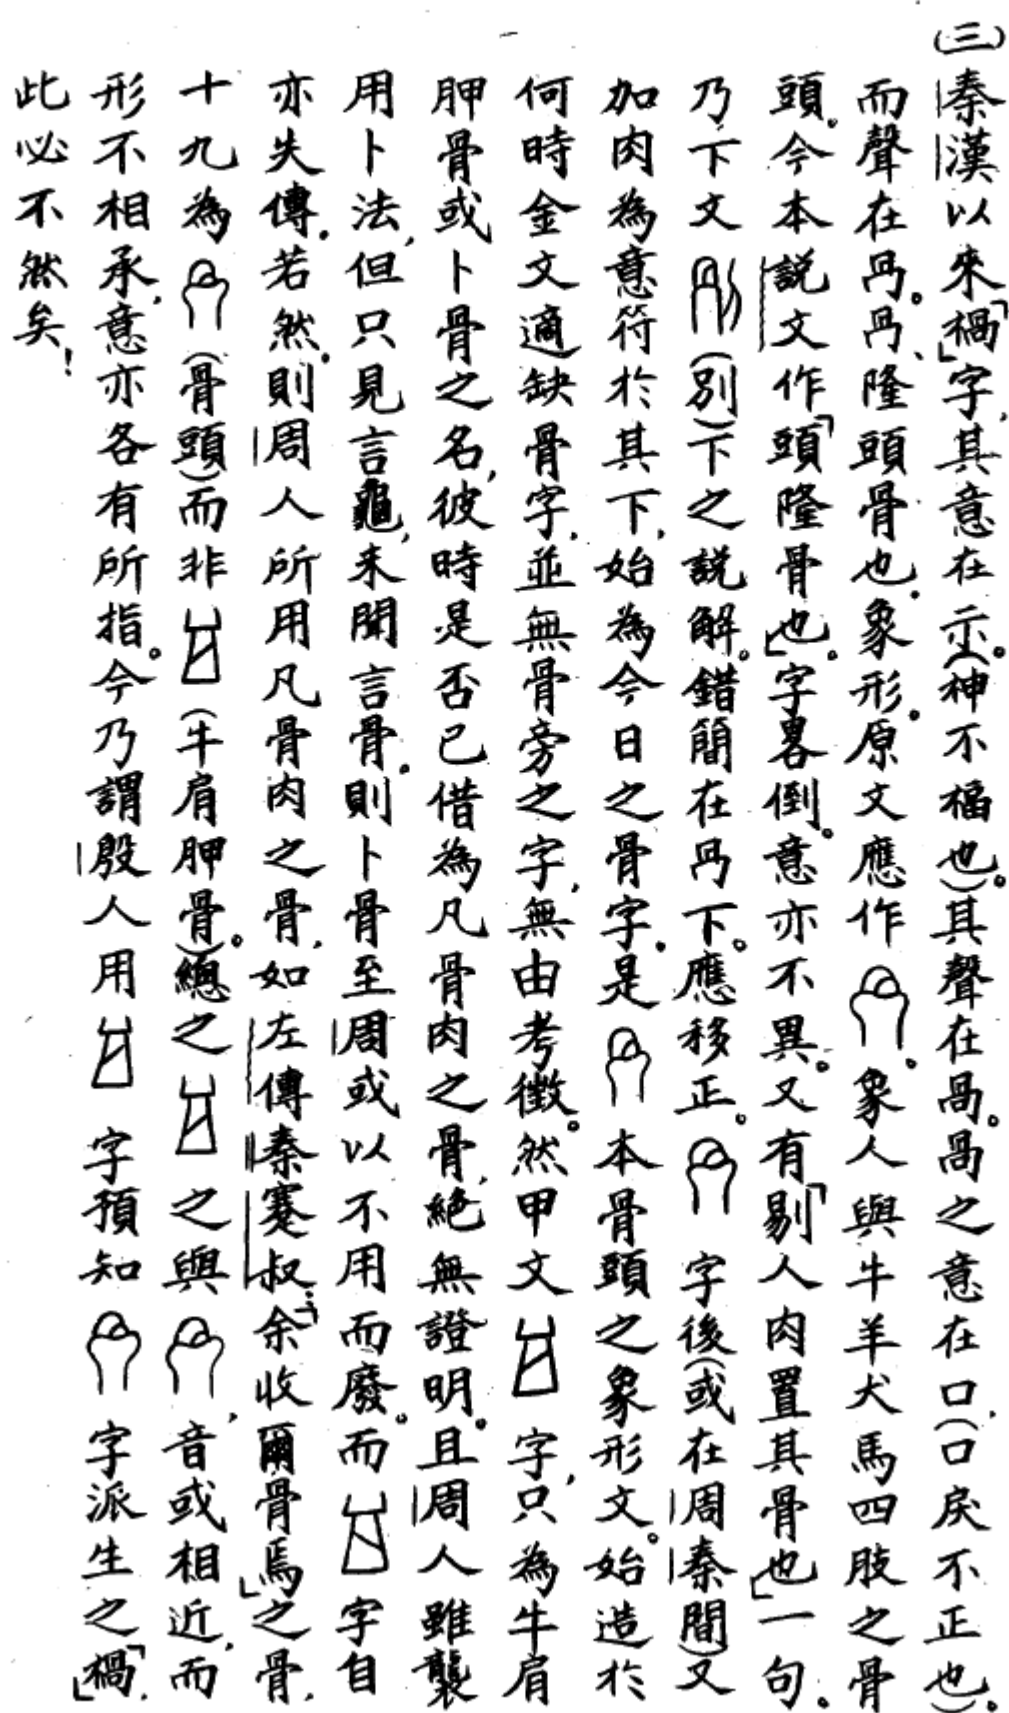 (三)秦漢以來「禍」字,其意在示。(神不福也。)其聲在咼。咼之意在口,(口戾不正也)。
而聲在冎。冎、隆頭骨也。象形。原文應作。象人與牛羊犬馬四肢之骨
頭。今本説文作「頭隆骨也」。字畧倒。意亦不異。又有「剔人肉置其骨也」一句。
乃下文(別)下之説解。錯簡在冎下。應移正。字後(或在周秦間)又
加肉為意符於其下,始為今日之骨字。是本骨頭之象形文。始造於
何時金文適缺骨字,並無骨旁之字,無由考徵。然甲文字,只為牛肩
胛骨或卜骨之名,彼時是否已借為凡骨肉之骨,絕無證明。且周人雖襲
用卜法,但只見言龜,未聞言骨。則卜骨至周或以不用而廢。而字自
亦失傳。若然。則周人所用凡骨肉之骨,如左傳秦蹇叔…「余收爾骨焉」之骨,
十九為(骨頭)而非(牛肩胛骨)。總之之與,音或相近,而
形不相承,意亦各有所指。今乃謂殷人用字預知字派生之「禍」,
此必不然矣!